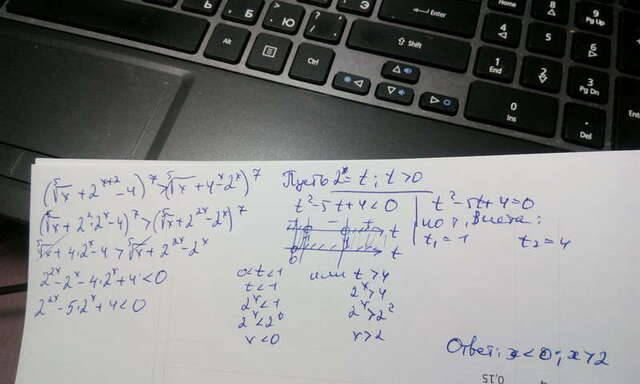 Alt
Ctrl
Enter
Shift
Home
8
9
Pg Up
4
5
6
1
End
2
3
Pg Dn
0
Ins
.
Del
Б
<
,
Ю
>
.
?
/
(⁵√x + 2ˣ⁺² - 4)⁷ > (⁵√x + 4ˣ - 2ˣ)⁷
(⁵√x + 2²·2ˣ - 4)⁷ > (⁵√x + 2²ˣ - 2ˣ)⁷
⁵√x + 4·2ˣ - 4 > ⁵√x + 2²ˣ - 2ˣ
2²ˣ - 2ˣ - 4·2ˣ + 4 < 0
2²ˣ - 5·2ˣ + 4 < 0
Пусть 2ˣ = t; t > 0
t² - 5t + 4 < 0
t² - 5t + 4 = 0
по т. Виета:
t₁ = 1 t₂ = 4
t
0 t
0 < t < 1 или t > 4
t < 1 2ˣ > 4
2ˣ < 1 2ˣ > 2²
2ˣ < 2⁰ x > 2
x < 0
Ответ: x < 0; x > 2
0,15